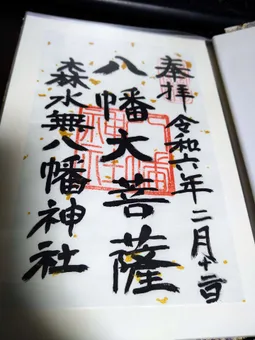 奉拝 令和六年二月十二日
八幡大菩薩
森水無八幡神社